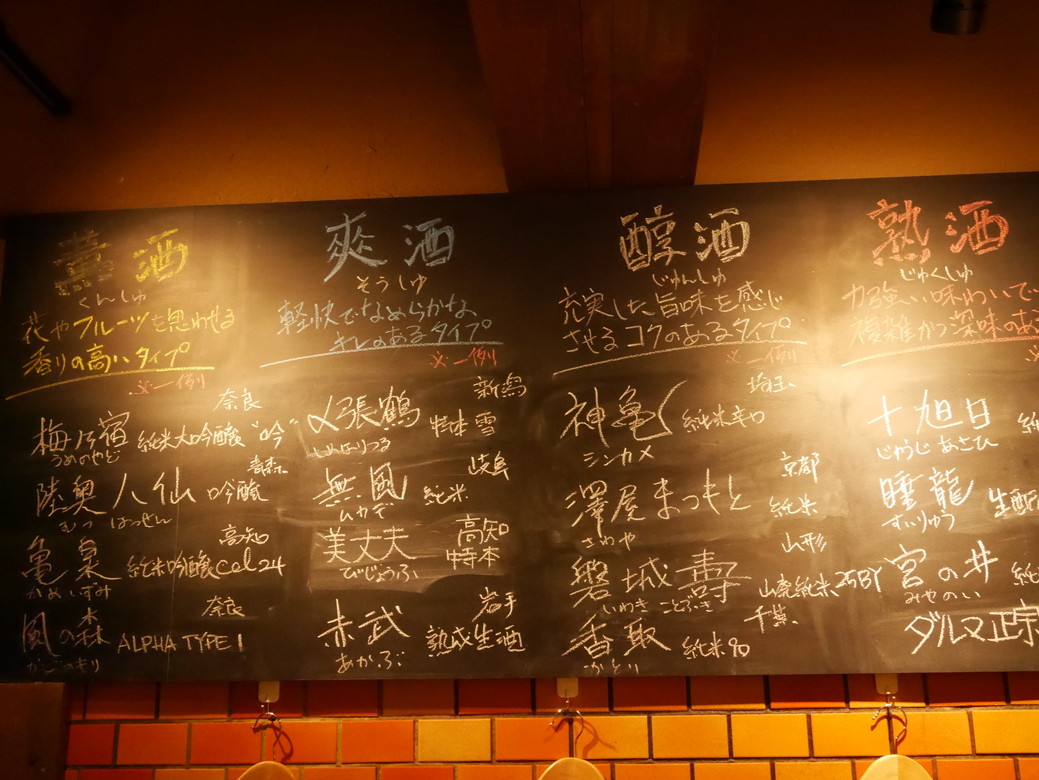 薫酒
くんしゅ
花やフルーツを思わせる
香りの高いタイプ
※一例
奈良
梅乃宿 純米大吟醸"吟"
うめのやど
青森
陸奥八仙 吟醸
むつ はっせん
高知
亀泉 純米吟醸cel24
かめいずみ
奈良
風の森 ALPHA TYPE1
かぜのもり
爽酒
そうしゅ
軽快でなめらかな
キレのあるタイプ
※一例
新潟
〆張鶴 特本 雪
しめはりつる
岐阜
無風 純米
ムカデ
高知
美丈夫 特本
びじょうふ
岩手
赤武 熟成生酒
あかぶ
醇酒
じゅんしゅ
充実した旨味を感じ
させるコクのあるタイプ
※一例
埼玉
神亀 純米辛口
シンカメ
京都
澤屋まつもと 純米
さわや
山形
磐城壽 山廃純米25BY
いわき ことぶき
千葉
香取 純米90
かとり
熟酒
じゅくしゅ
力強い味わいで
複雑かつ深味のあ
※
十旭日 純
じゅうじ あさひ
睡龍 生酛
すいりゅう
宮の井 純
みやのい
ダルマ正宗